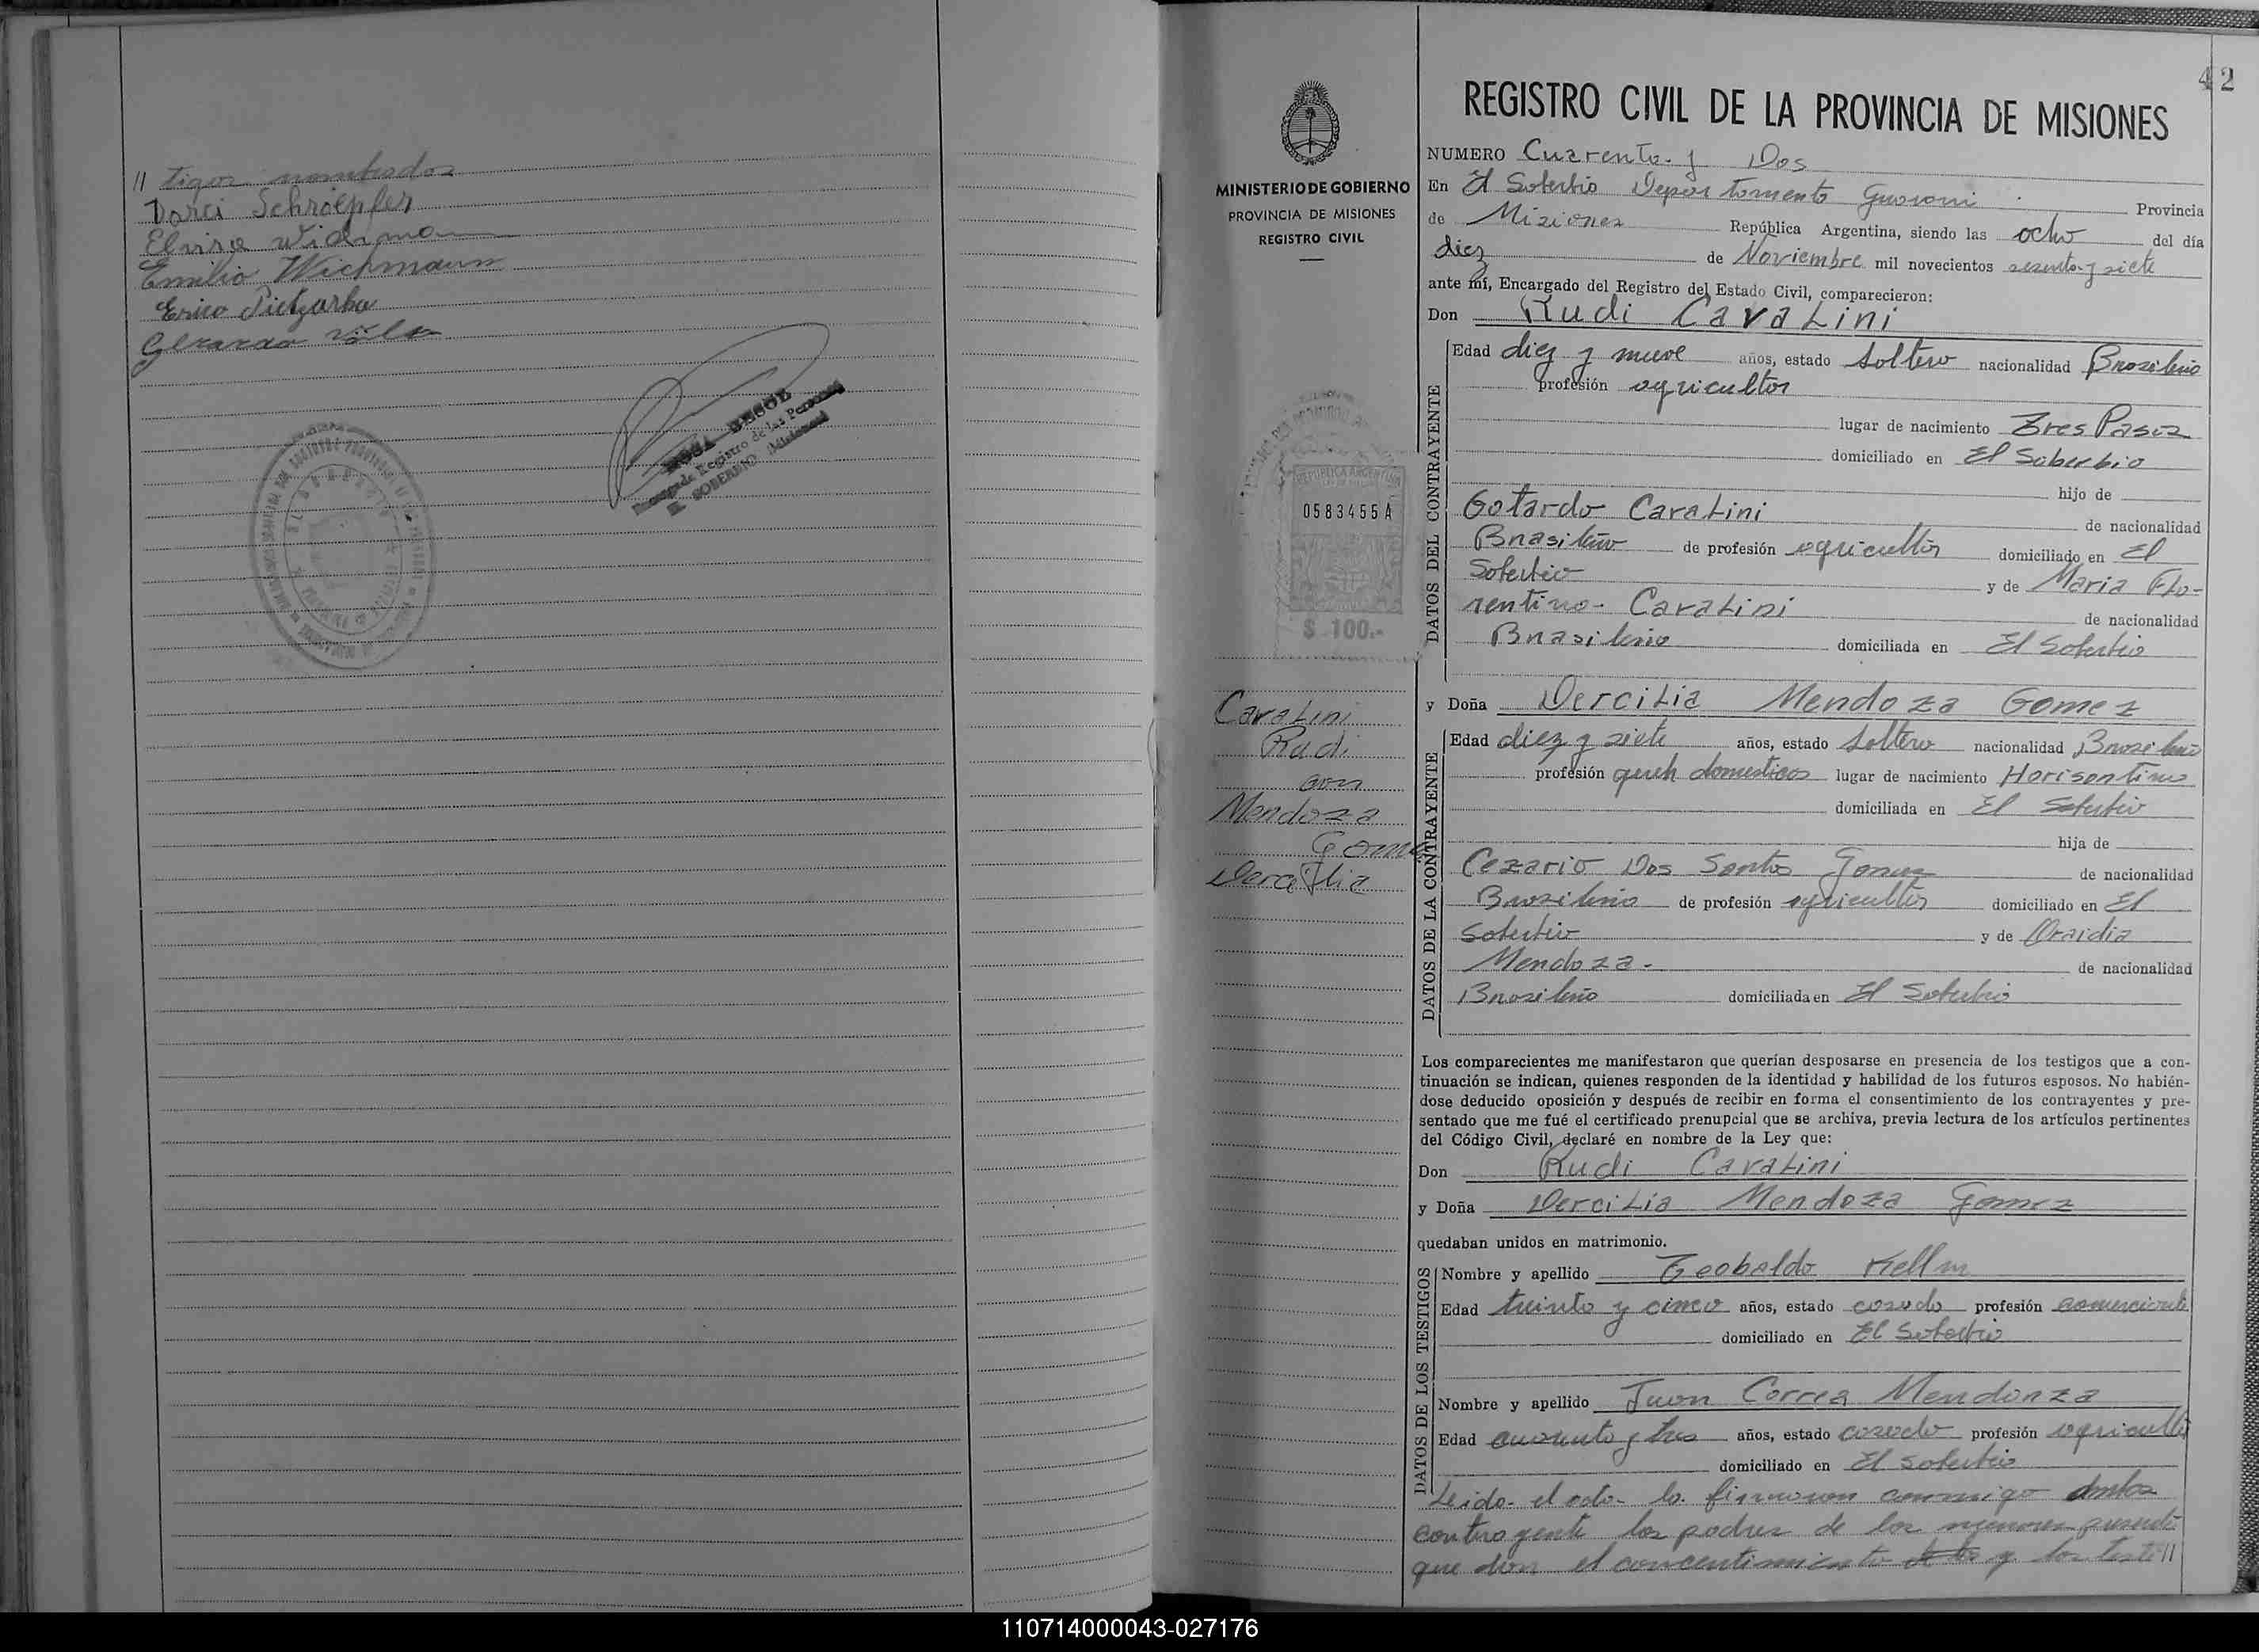 // tigos nombrados
Darci Schröepfer
Elvira Widman
Emilio Wichmann
Erico
Gerardo
ROSA
Registro de las Personas
EL SOBERBIO (Misiones)
42
REGISTRO CIVIL DE LA PROVINCIA DE MISIONES
MINISTERIO DE GOBIERNO
PROVINCIA DE MISIONES
REGISTRO CIVIL
REPUBLICA ARGENTINA
0583455A
$ 100.-
Cavalini
Rudi
con
Mendoza
Gomez
Dercilia
NUMERO Cuarenta y Dos
En El Soberbio Departamento Guarani Provincia
de Misiones República Argentina, siendo las ocho del día
diez de Noviembre mil novecientos sesenta y siete
ante mí, Encargado del Registro del Estado Civil, comparecieron:
Don Rudi Cavalini
DATOS DEL CONTRAYENTE
Edad diez y nueve años, estado soltero nacionalidad Brasileño
profesión agricultor
lugar de nacimiento Tres Pasos
domiciliado en El Soberbio
hijo de
Gotardo Cavalini de nacionalidad
Brasileño de profesión agricultor domiciliado en El
Soberbio y de Maria Flo-
rentino- Cavalini de nacionalidad
Brasileño domiciliada en El Soberbio
y Doña Dercilia Mendoza Gomez
DATOS DE LA CONTRAYENTE
Edad diez y siete años, estado soltera nacionalidad Brasileño
profesión domesticos lugar de nacimiento Horisontino
domiciliada en El Soberbio
hija de
Cezario Dos Santos Gomez de nacionalidad
Brasileño de profesión agricultor domiciliado en El
Soberbio y de Oraidia
Mendoza- de nacionalidad
Brasileño domiciliada en El Soberbio
Los comparecientes me manifestaron que querían desposarse en presencia de los testigos que a con-
tinuación se indican, quienes responden de la identidad y habilidad de los futuros esposos. No habién-
dose deducido oposición y después de recibir en forma el consentimiento de los contrayentes y pre-
sentado que me fué el certificado prenupcial que se archiva, previa lectura de los artículos pertinentes
del Código Civil, declaré en nombre de la Ley que:
Don Rudi Cavalini
y Doña Dercilia Mendoza Gomez
quedaban unidos en matrimonio.
DATOS DE LOS TESTIGOS
Nombre y apellido Teobaldo
Edad treinta y cinco años, estado casado profesión comerciante
domiciliado en El Soberbio
Nombre y apellido Juan Correa Mendonza
Edad cuarenta y tres años, estado casado profesión agricultor
domiciliado en El Soberbio
Leido- el acta- la firmaron conmigo ambos
contrayente los padres de los menores
que dan el concentimiento y los testi//
110714000043-027176